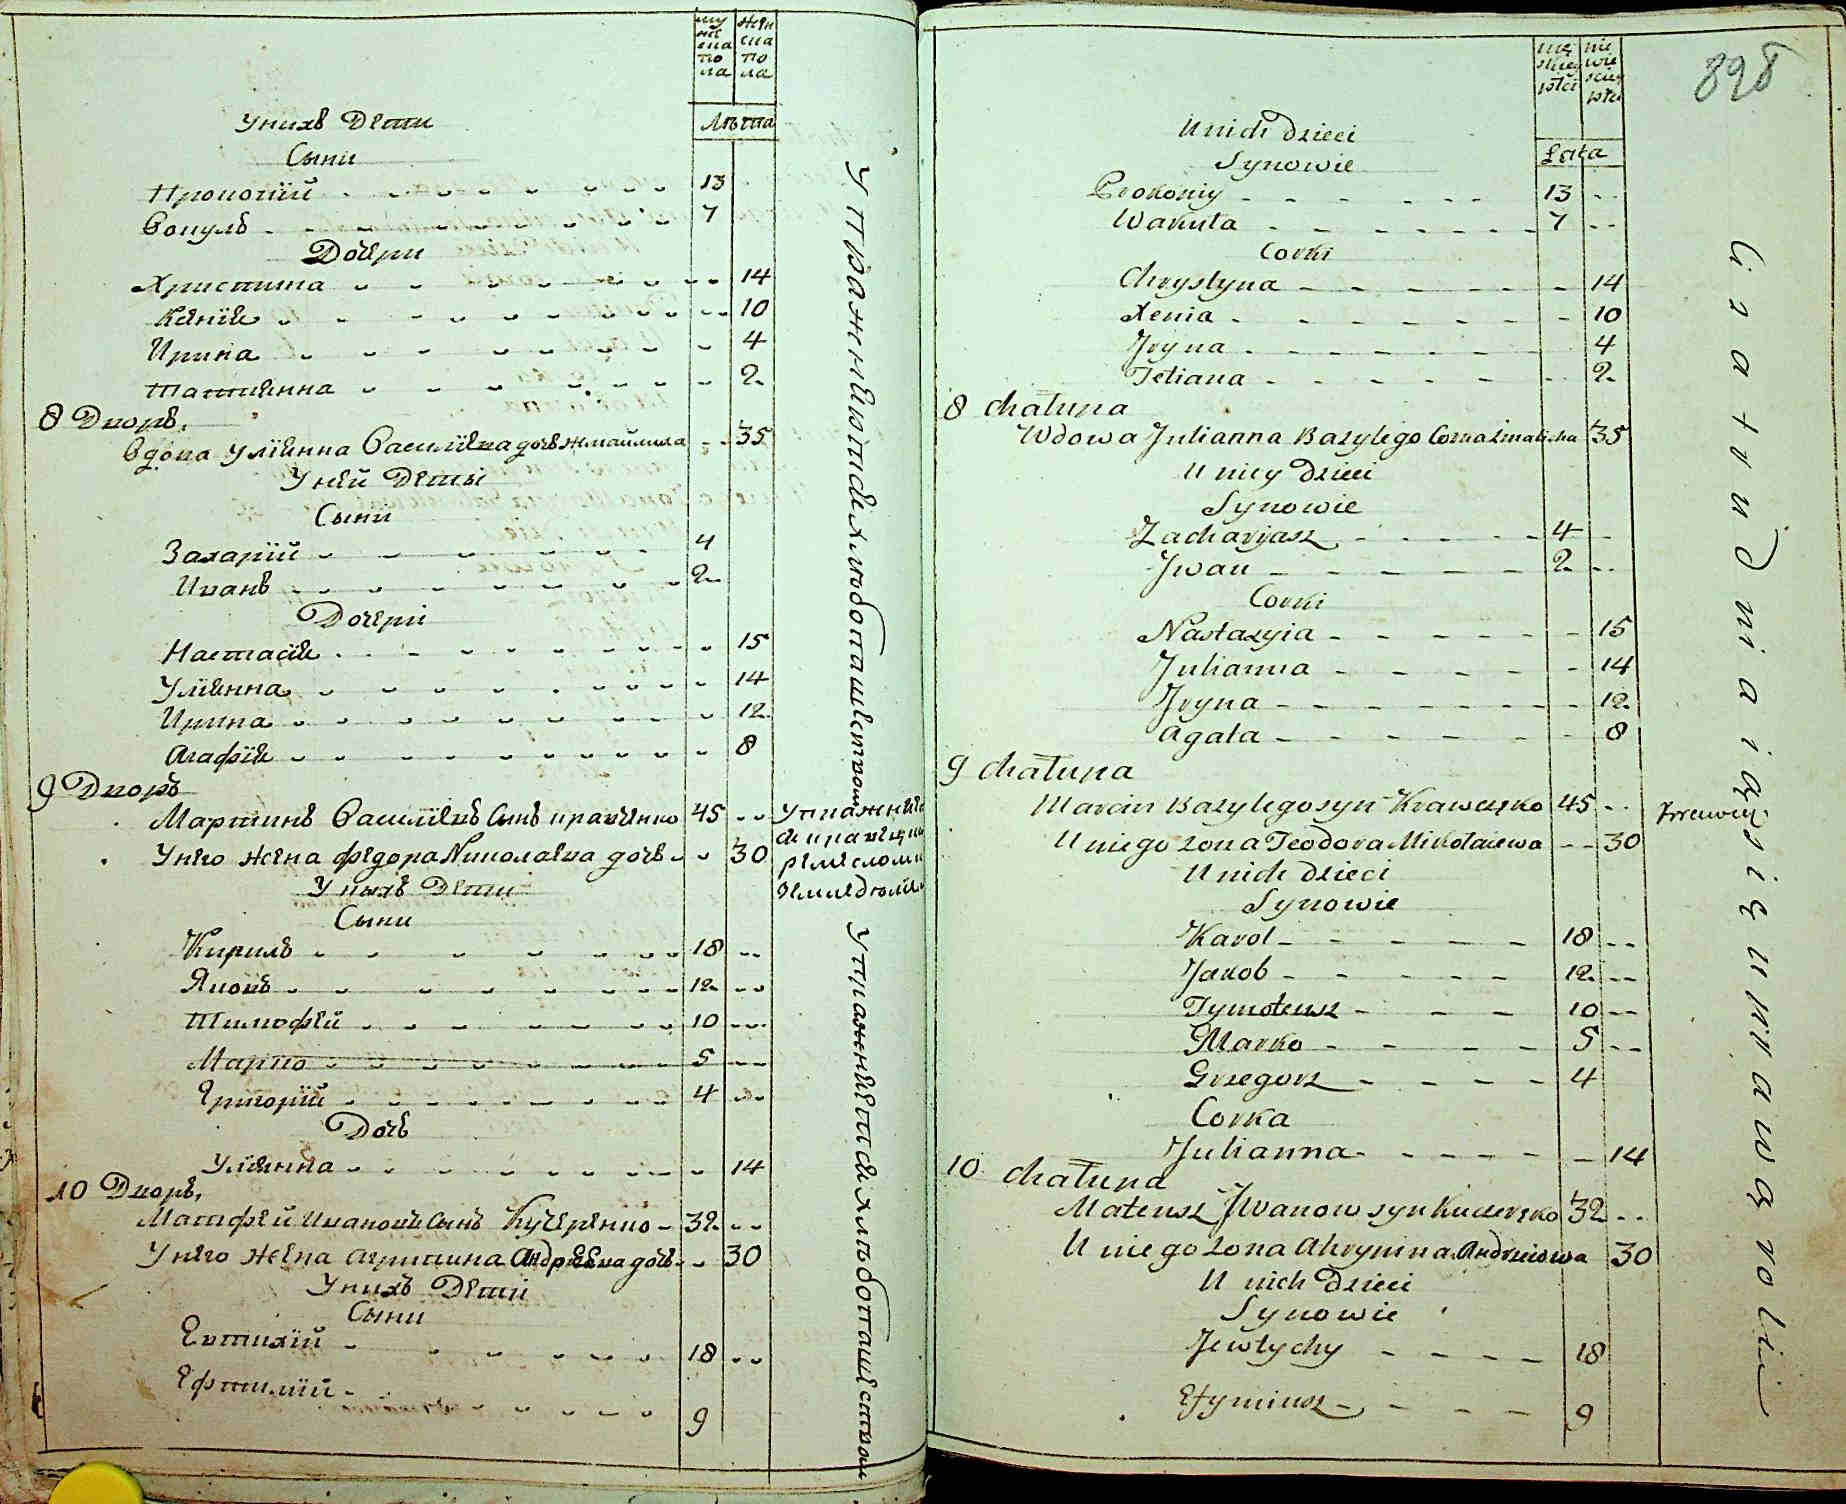 мужескаго пола
женска пола
Лѣта
Унихъ Дѣти
Сыни
Прокопій 13
Вакулъ 7
Дочери
Христина 14
Ксенія 10
Ирина 4
Татіянна 2
8 Дворъ
Вдова Уліянна Василіева дочь 35
У ней Дѣти
Сыни
Захарій 4
Иванъ 2
Дочери
Настасія 15
Уліянна 14
Ирина 12
Агафія 8
9 Дворъ
Мартинъ Василіевъ Сынъ Кравченко 45
У него жена Федора Николаева дочь 30
У нихъ Дѣти
Сыни
Кирилъ 18
Яковъ 12
Тимофей 10
Марко 5
Григорій 4
Дочь
Уліянна 14
10 Дворъ
Матфей Ивановъ Сынъ Кучеренко 32
У него жена Агрипина Андрѣева дочь 30
У нихъ Дѣти
Сыни
Евтихій 18
Ефтимій 9
Упражняются хлѣбопашествомъ
Упражняются хлѣбопашествомъ
898
męskiey płci
niewieściey płci
Lata
U nich dzieci
Synowie
Prokopiy 13
Wakuła 7
Corki
Chrystyna 14
Xenia 10
Jryna 4
Tetiana 2
8 chałupa
Wdowa Julianna Bazylego Corka 35
U niey dzieci
Synowie
Zacharyasz 4
Jwan 2
Corki
Nastazyia 15
Julianna 14
Jryna 12
Agata 8
9 chałupa
Marcin Bazylego syn Krawczęko 45
U niego żona Teodora Mikołaiewa 30
U nich dzieci
Synowie
Karol 18
Jakob 12
Tymoteusz 10
Marko 5
Grzegorz 4
Corka
Julianna 14
10 chałupa
Mateusz Jwanow syn Kuczeręko 32
U niego żona Ahrypina Andrzeiowa 30
U nich dzieci
Synowie
Jewtychy 18
Efymiusz 9
Krawiec
Zatrudniaią się uprawą roli